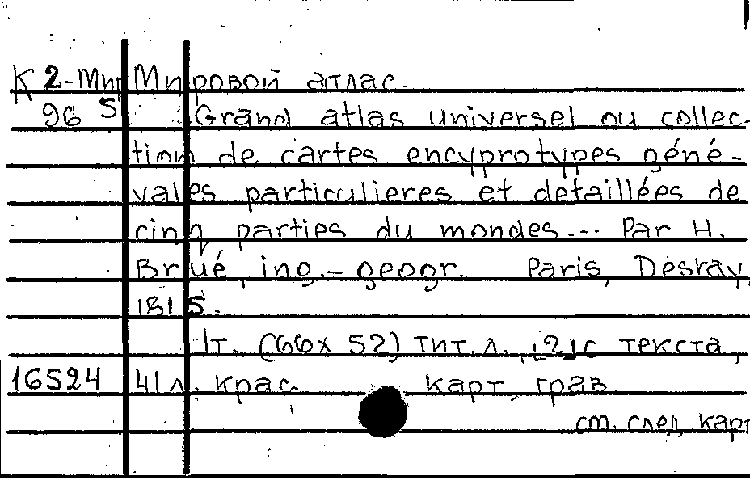 К 2-Мир Мировой атлас.
96 5 Grand atlas universel ou collec-
tion de cartes encyprotypes géné-
vales particulieres et detaillées de
cinq parties du mondes... Par H.
Brué, ing.-geogr. Paris, Desray,
1815.
1т. (66x52) тит.л., [2]с текста,
16524 41л. крас. карт. грав
см. след. карт